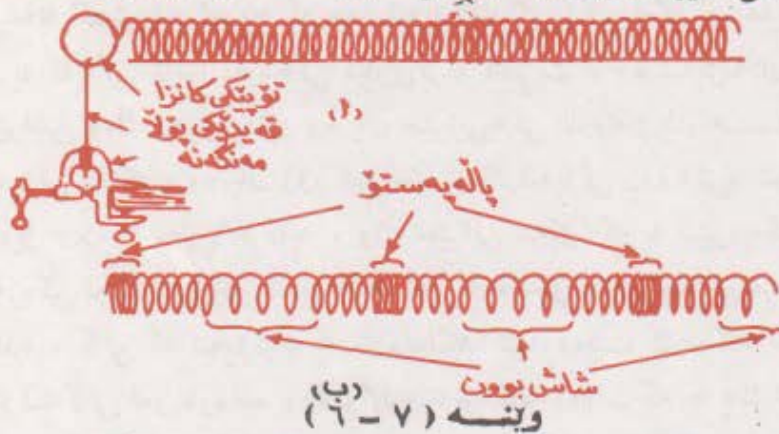 تۆپێکی کانزا
(أ)
قەیدێکی پۆڵا
مەنگەنە
پاڵەپەستۆ
شاش بوون
(ب)
وێنـــە (٧ – ٦)